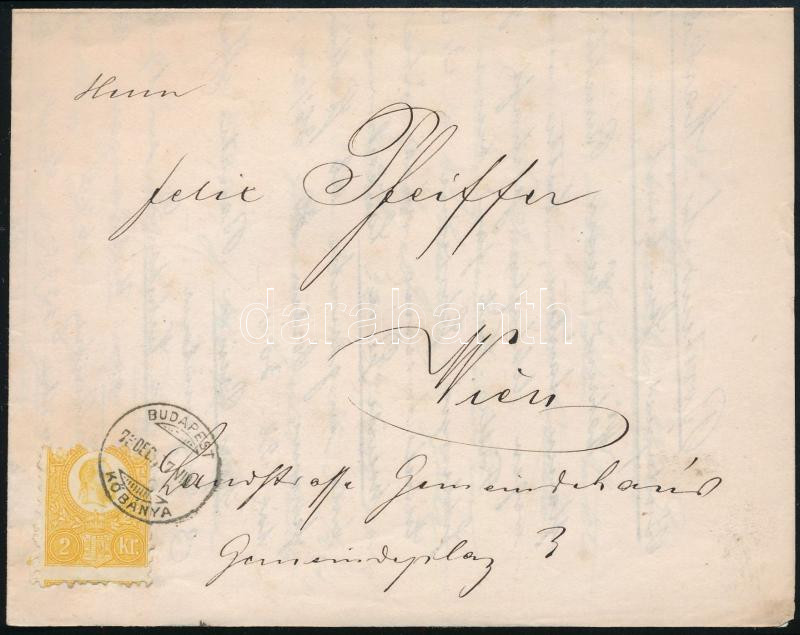 Herrn
Felix Pfeiffer
Wien
Landstrasse Gemeindehaus
Gemeindeplaz 3
BUDAPEST
KŐBÁNYA
2 Kr.
darabanth